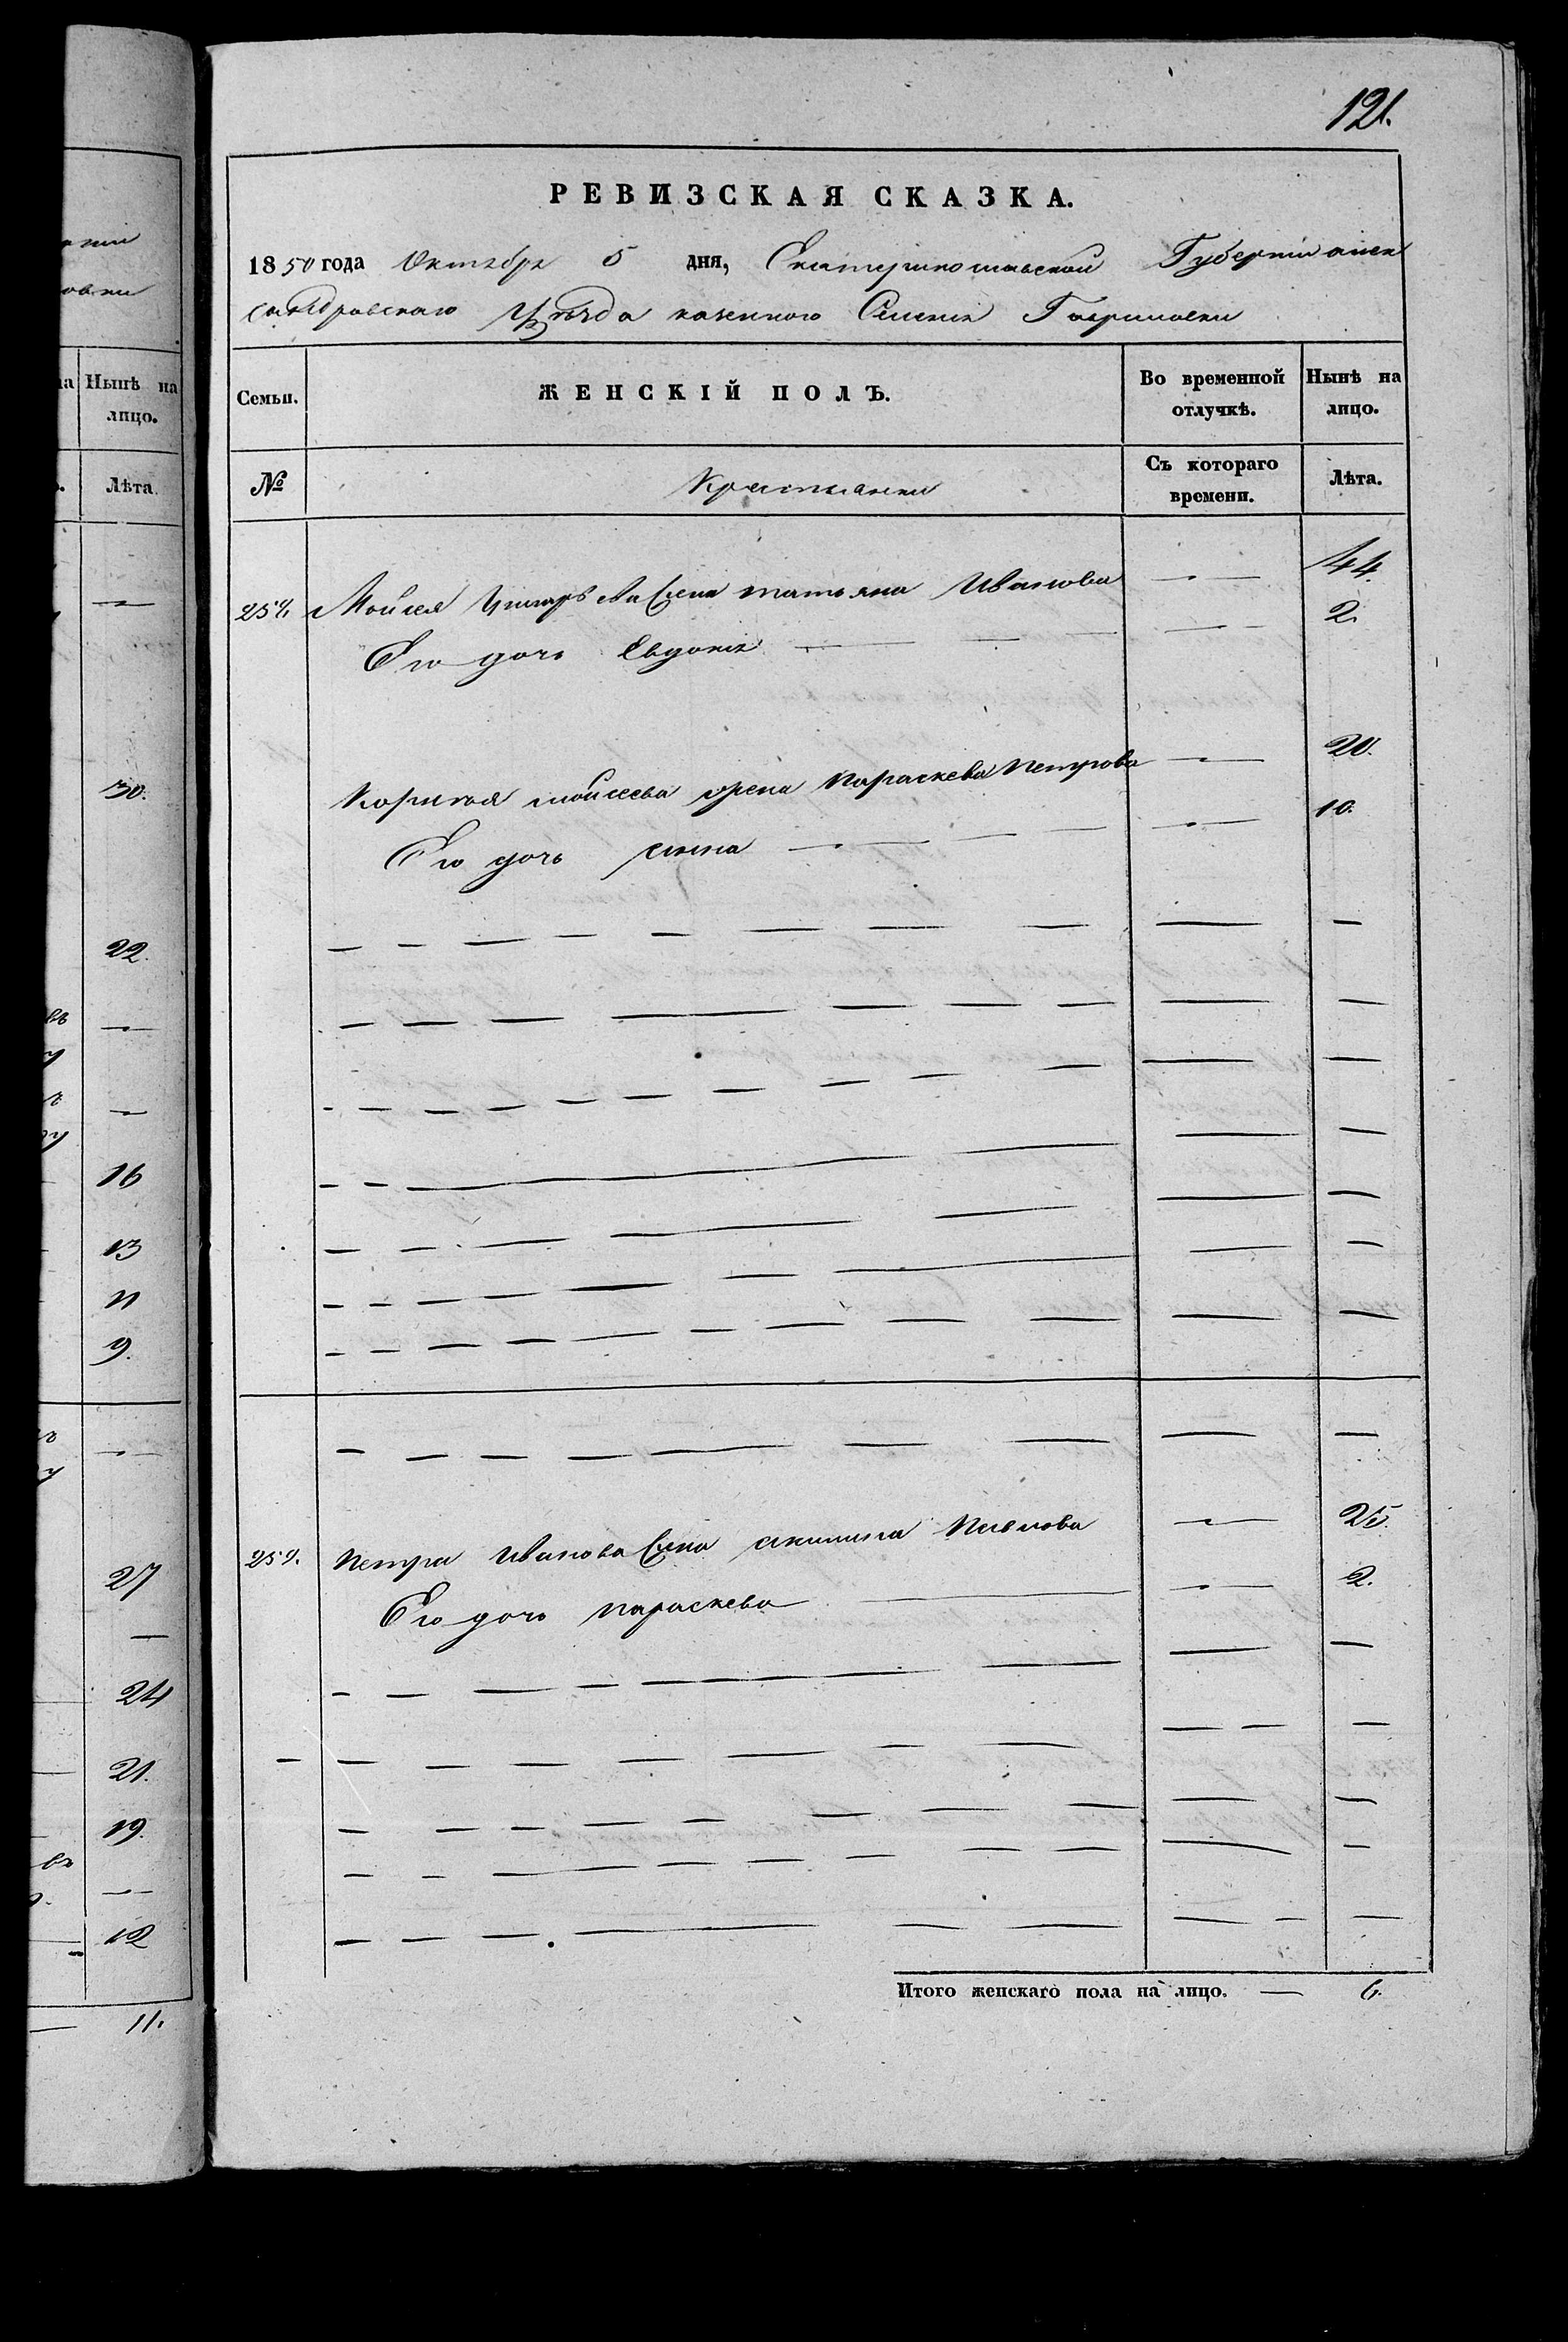 нiи
овки
Нынѣ на
лицо.
Лѣта.
30.
22.
16
13
11
9.
27
24
21.
19.
12
11.
121.
РЕВИЗСКАЯ СКАЗКА.
1850 года Октября 5 дня, Екатеринославской Губернiи алек
сандровскаго Уѣзда казеннаго Селенiя Гавриловки
Семьи. ЖЕНСКІЙ ПОЛЪ. Во временной отлучкѣ. Нынѣ на лицо.
№ Крестьянки Съ котораго времени. Лѣта.
Мойсея жена татьяна Иванова — 44.
Его дочь Евдокiя — — 2.
Моисеева жена Параскева Петрова — 20.
Его дочь — — 10.
Петра Иванова жена акилина Павлова — 25.
Его дочь параскева — — 2.
Итого женскаго пола на лицо. — 6.